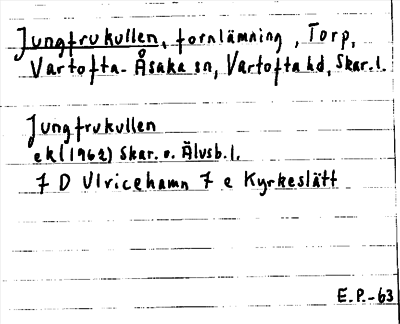 Jungfrukullen, fornlämning, Torp,
Vartofta-Åsaka sn, Vartofta hd, Skar.l.
Jungfrukullen
ek (1962) Skar. o. Älvsb.l.
7 D Ulricehamn 7 e Kyrkeslätt
E.P.-63